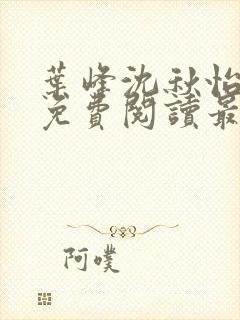 葉峰沈秋怡
免費閱讀最
阿噗